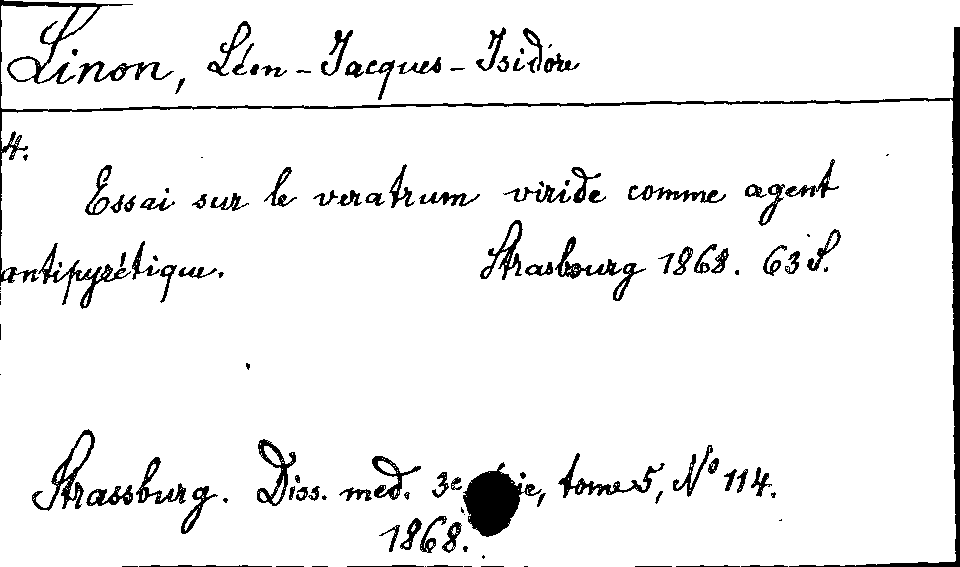 Linon, Léon-Jacques-Isidore
4.
Essai sur le veratrum viride comme agent
antipyrétique. Strasbourg 1868. 63 S.
Strassburg. Diss. med. 3e tome 5, No 114.
1868.